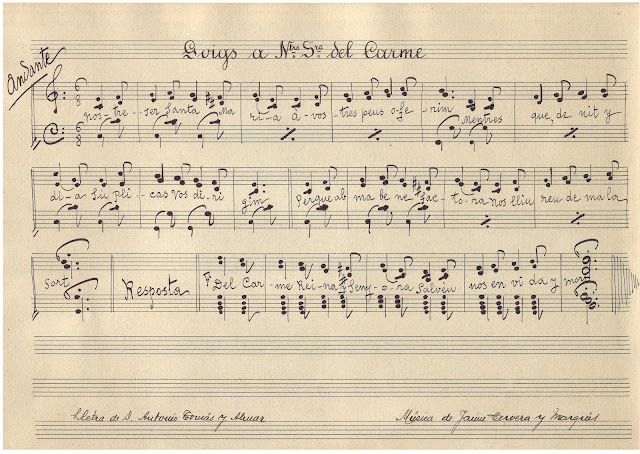 Goigs a Ntra. Sra. del Carme
Andante
Nos-tre- ser Santa Ma ri-a a-vos -tres peus o-fe- rim: Mentres que, de nit y
di-a Supli- cas vos di-ri gim Perque ab ma be ne fac- to-ra Nos lliu reu de mala
Sort Resposta F Del Car- me Rei-na Seny-o-ra Salveu nos en vi da y mort
Lletra de D. Antonio Tomás y
Música de Jaime Cervera y Marqués